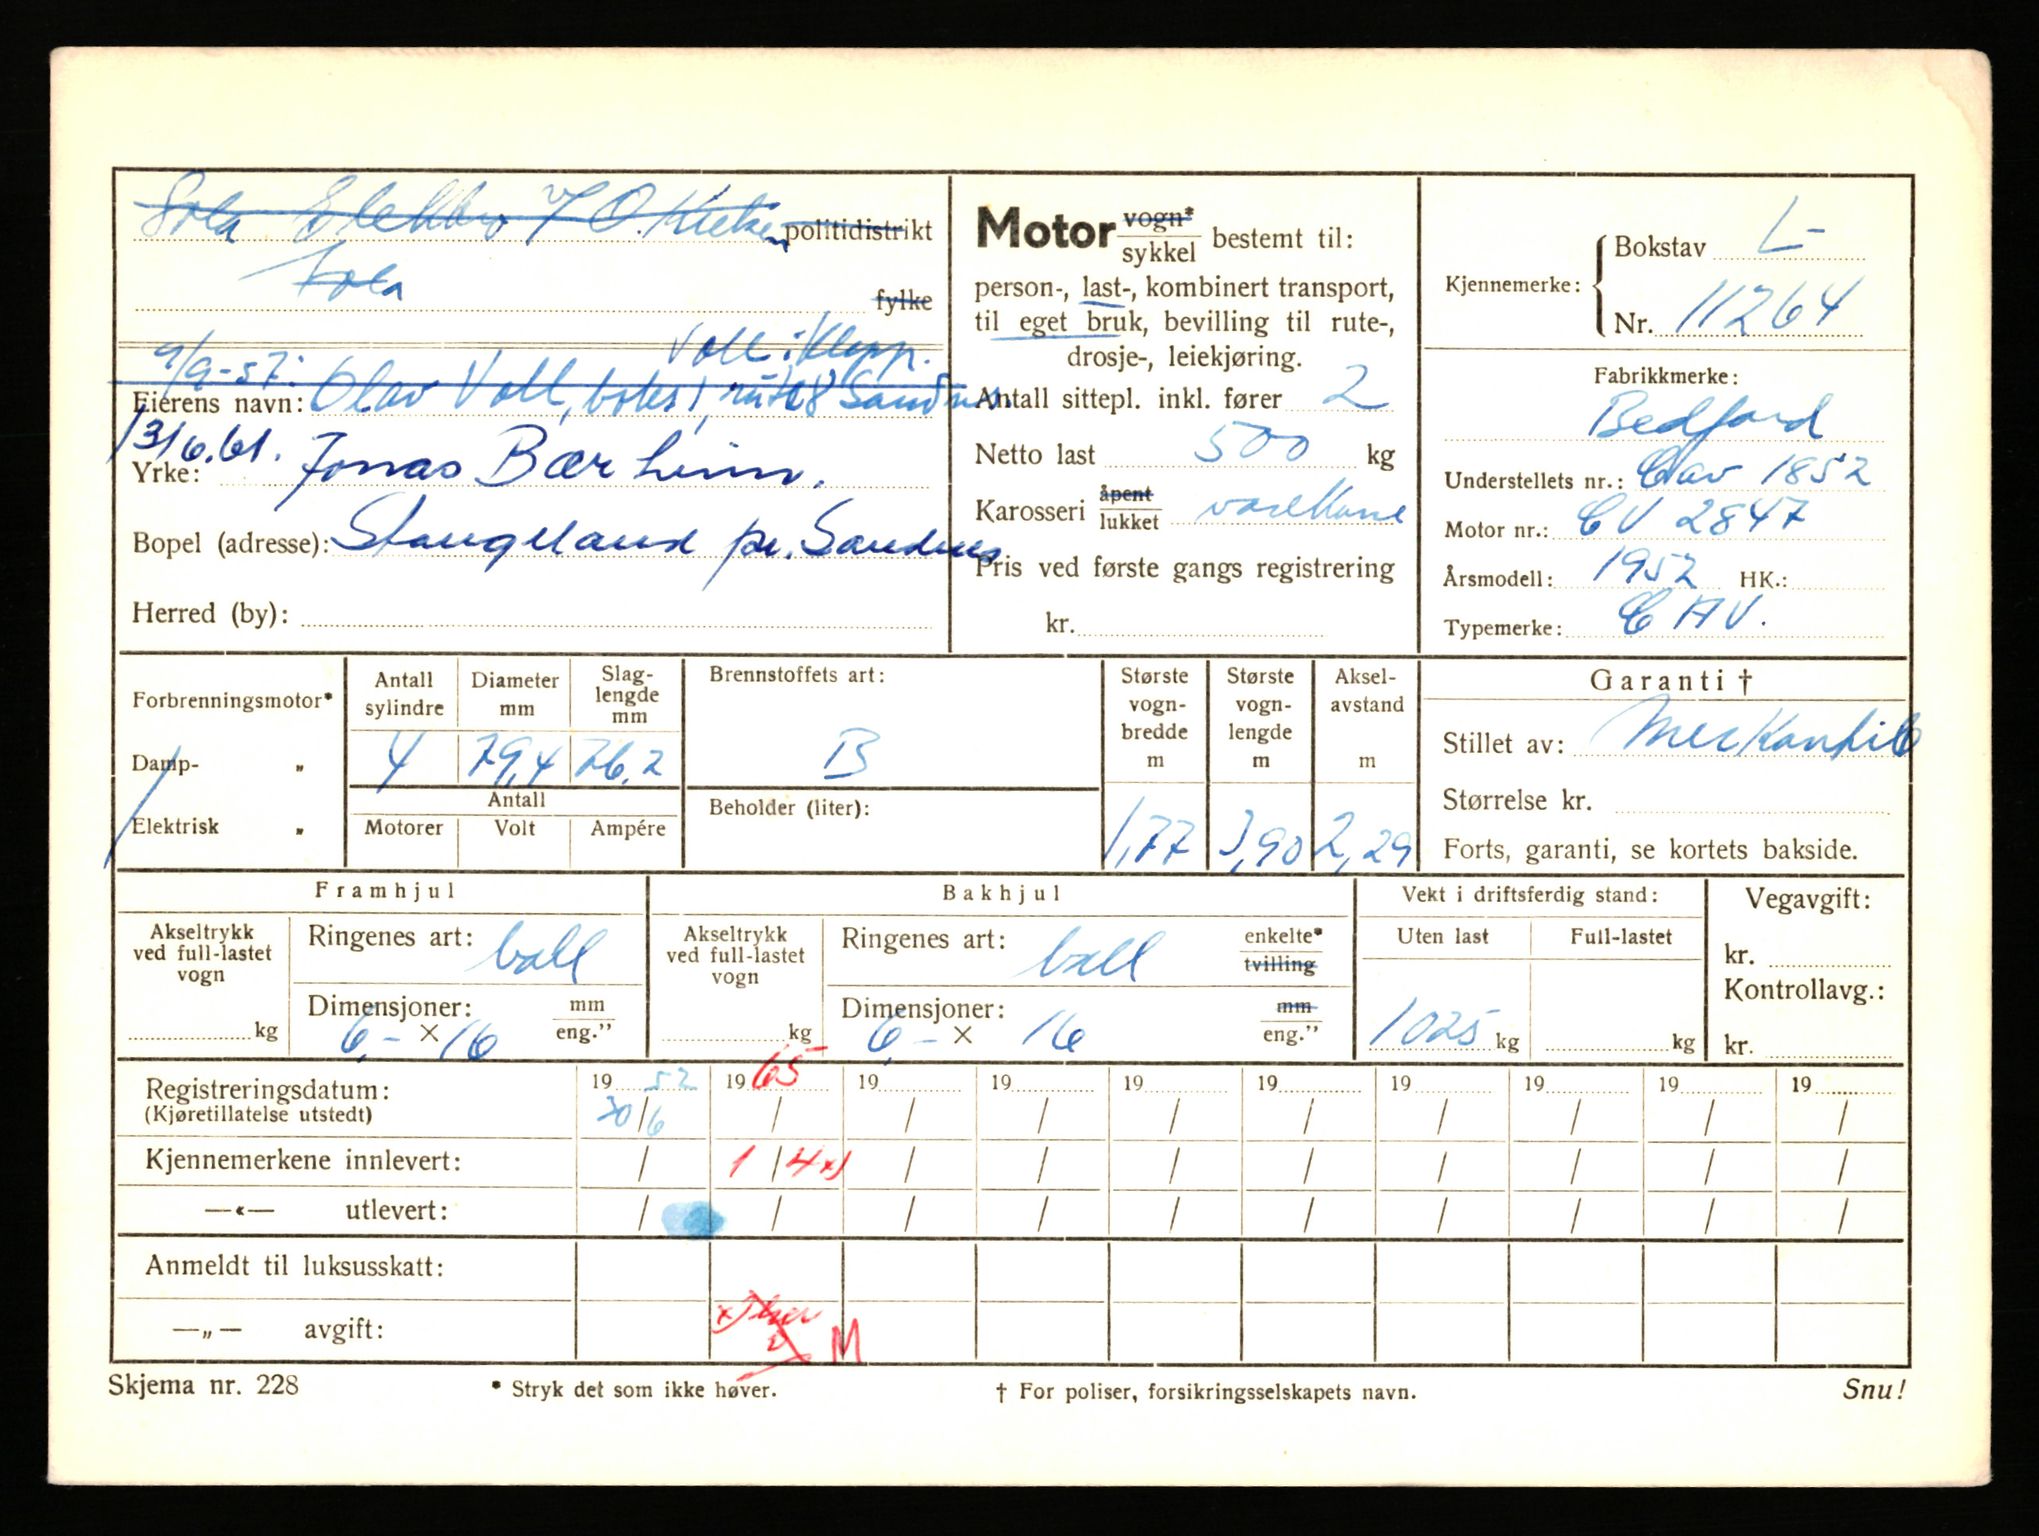 Sola Elektro v/ O. politidistrikt
Sola fylke
9/9-57: Voll i Klepp.
Eierens navn: Olav Voll, boks 1, rute 8 Sandnes.
13/6.61. Jonas Bærheim.
Yrke:
Bopel (adresse): Stangeland pr. Sandnes
Herred (by):
Motor vogn* sykkel bestemt til:
person-, last-, kombinert transport,
til eget bruk, bevilling til rute-,
drosje-, leiekjøring.
Antall sittepl. inkl. fører 2
Netto last 500 kg
Karosseri åpent lukket varekasse
Pris ved første gangs registrering
kr.
Kjennemerke: Bokstav L-
Nr. 11264
Fabrikkmerke:
Bedford
Understellets nr.: Cav 1852
Motor nr.: CV 2847
Årsmodell: 1952 HK.:
Typemerke: CAV.
Forbrenningsmotor*
Damp- „
Elektrisk „
Antall sylindre Diameter mm Slag-lengde mm
4 79,4 76,2
Antall
Motorer Volt Ampére
Brennstoffets art:
B
Beholder (liter):
Største vogn-bredde m Største vogn-lengde m Aksel-avstand m
1,77 3,90 2,29
Garanti †
Stillet av: Merkantile
Størrelse kr.
Forts, garanti, se kortets bakside.
Framhjul
Akseltrykk ved full-lastet vogn
kg
Ringenes art: ball
Dimensjoner: mm
6,- × 16 eng.”
Bakhjul
Akseltrykk ved full-lastet vogn
kg
Ringenes art: ball enkelte* tvilling
Dimensjoner: mm
6,- × 16 eng.”
Vekt i driftsferdig stand:
Uten last Full-lastet
1025 kg kg
Vegavgift:
kr.
Kontrollavg.:
kr.
Registreringsdatum: 19 52 19 65 19 19 19 19 19 19 19 19
(Kjøretillatelse utstedt) 30/6 / / / / / / / / /
Kjennemerkene innlevert: / 1/4 x) / / / / / / / /
—«— utlevert: / / / / / / / / / /
Anmeldt til luksusskatt:
—„— avgift: x) M
Skjema nr. 228 * Stryk det som ikke høver. † For poliser, forsikringsselskapets navn. Snu!